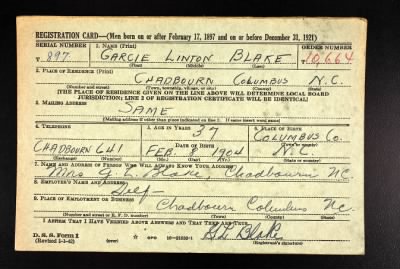 REGISTRATION CARD—(Men born on or after February 17, 1897 and on or before December 31, 1921)
SERIAL NUMBER 1. NAME (Print) ORDER NUMBER
V 897 GARCIE LINTON BLAKE 10,664
(First) (Middle) (Last)
2. PLACE OF RESIDENCE (Print)
CHADBOURN COLUMBUS N.C.
(Number and street) (Town, township, village, or city) (County) (State)
[THE PLACE OF RESIDENCE GIVEN ON THE LINE ABOVE WILL DETERMINE LOCAL BOARD
JURISDICTION; LINE 2 OF REGISTRATION CERTIFICATE WILL BE IDENTICAL]
3. MAILING ADDRESS
SAME
[Mailing address if other than place indicated on line 2. If same insert word same]
4. TELEPHONE 5. AGE IN YEARS 37 6. PLACE OF BIRTH
COLUMBUS CO.
DATE OF BIRTH (Town or county)
CHADBOURN 641 FEB. 8 1904 N.C.
(Exchange) (Number) (Mo.) (Day) (Yr.) (State or country)
7. NAME AND ADDRESS OF PERSON WHO WILL ALWAYS KNOW YOUR ADDRESS
Mrs G. L. Blake, Chadbourn NC.
8. EMPLOYER'S NAME AND ADDRESS
Self
9. PLACE OF EMPLOYMENT OR BUSINESS
Chadbourn Columbus NC
(Number and street or R. F. D. number) (Town) (County) (State)
I AFFIRM THAT I HAVE VERIFIED ABOVE ANSWERS AND THAT THEY ARE TRUE.
D. S. S. Form 1
(Revised 1-1-42) (over) GPO G L Blake
(Registrant's signature)